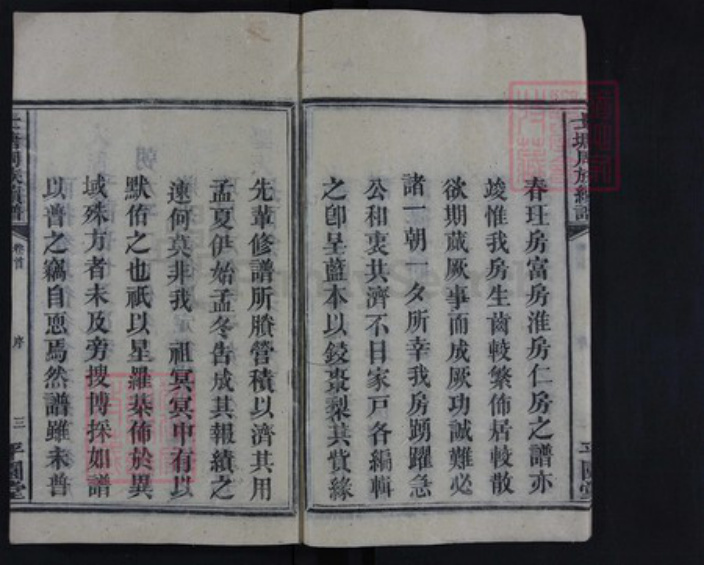 春玨房富房淮房仁房之譜亦
竣惟我房生齒較繁佈居較散
欲期蕆厥事而成厥功誠難必
諸一朝一夕所幸我房踴躍急
公和衷共濟不日家戶各編輯
之卽呈藍本以鋟棗梨其貲緣
先輩修譜所賸管積以濟其用
孟夏伊始孟冬告成其報績之
速何莫非我 祖冥冥中有以
默佑之也祇以星羅棊佈於異
域殊方者未及旁搜博採如譜
以普之竊自恧焉然譜雖未普
士塘周族續譜
卷首
序
三
平園堂